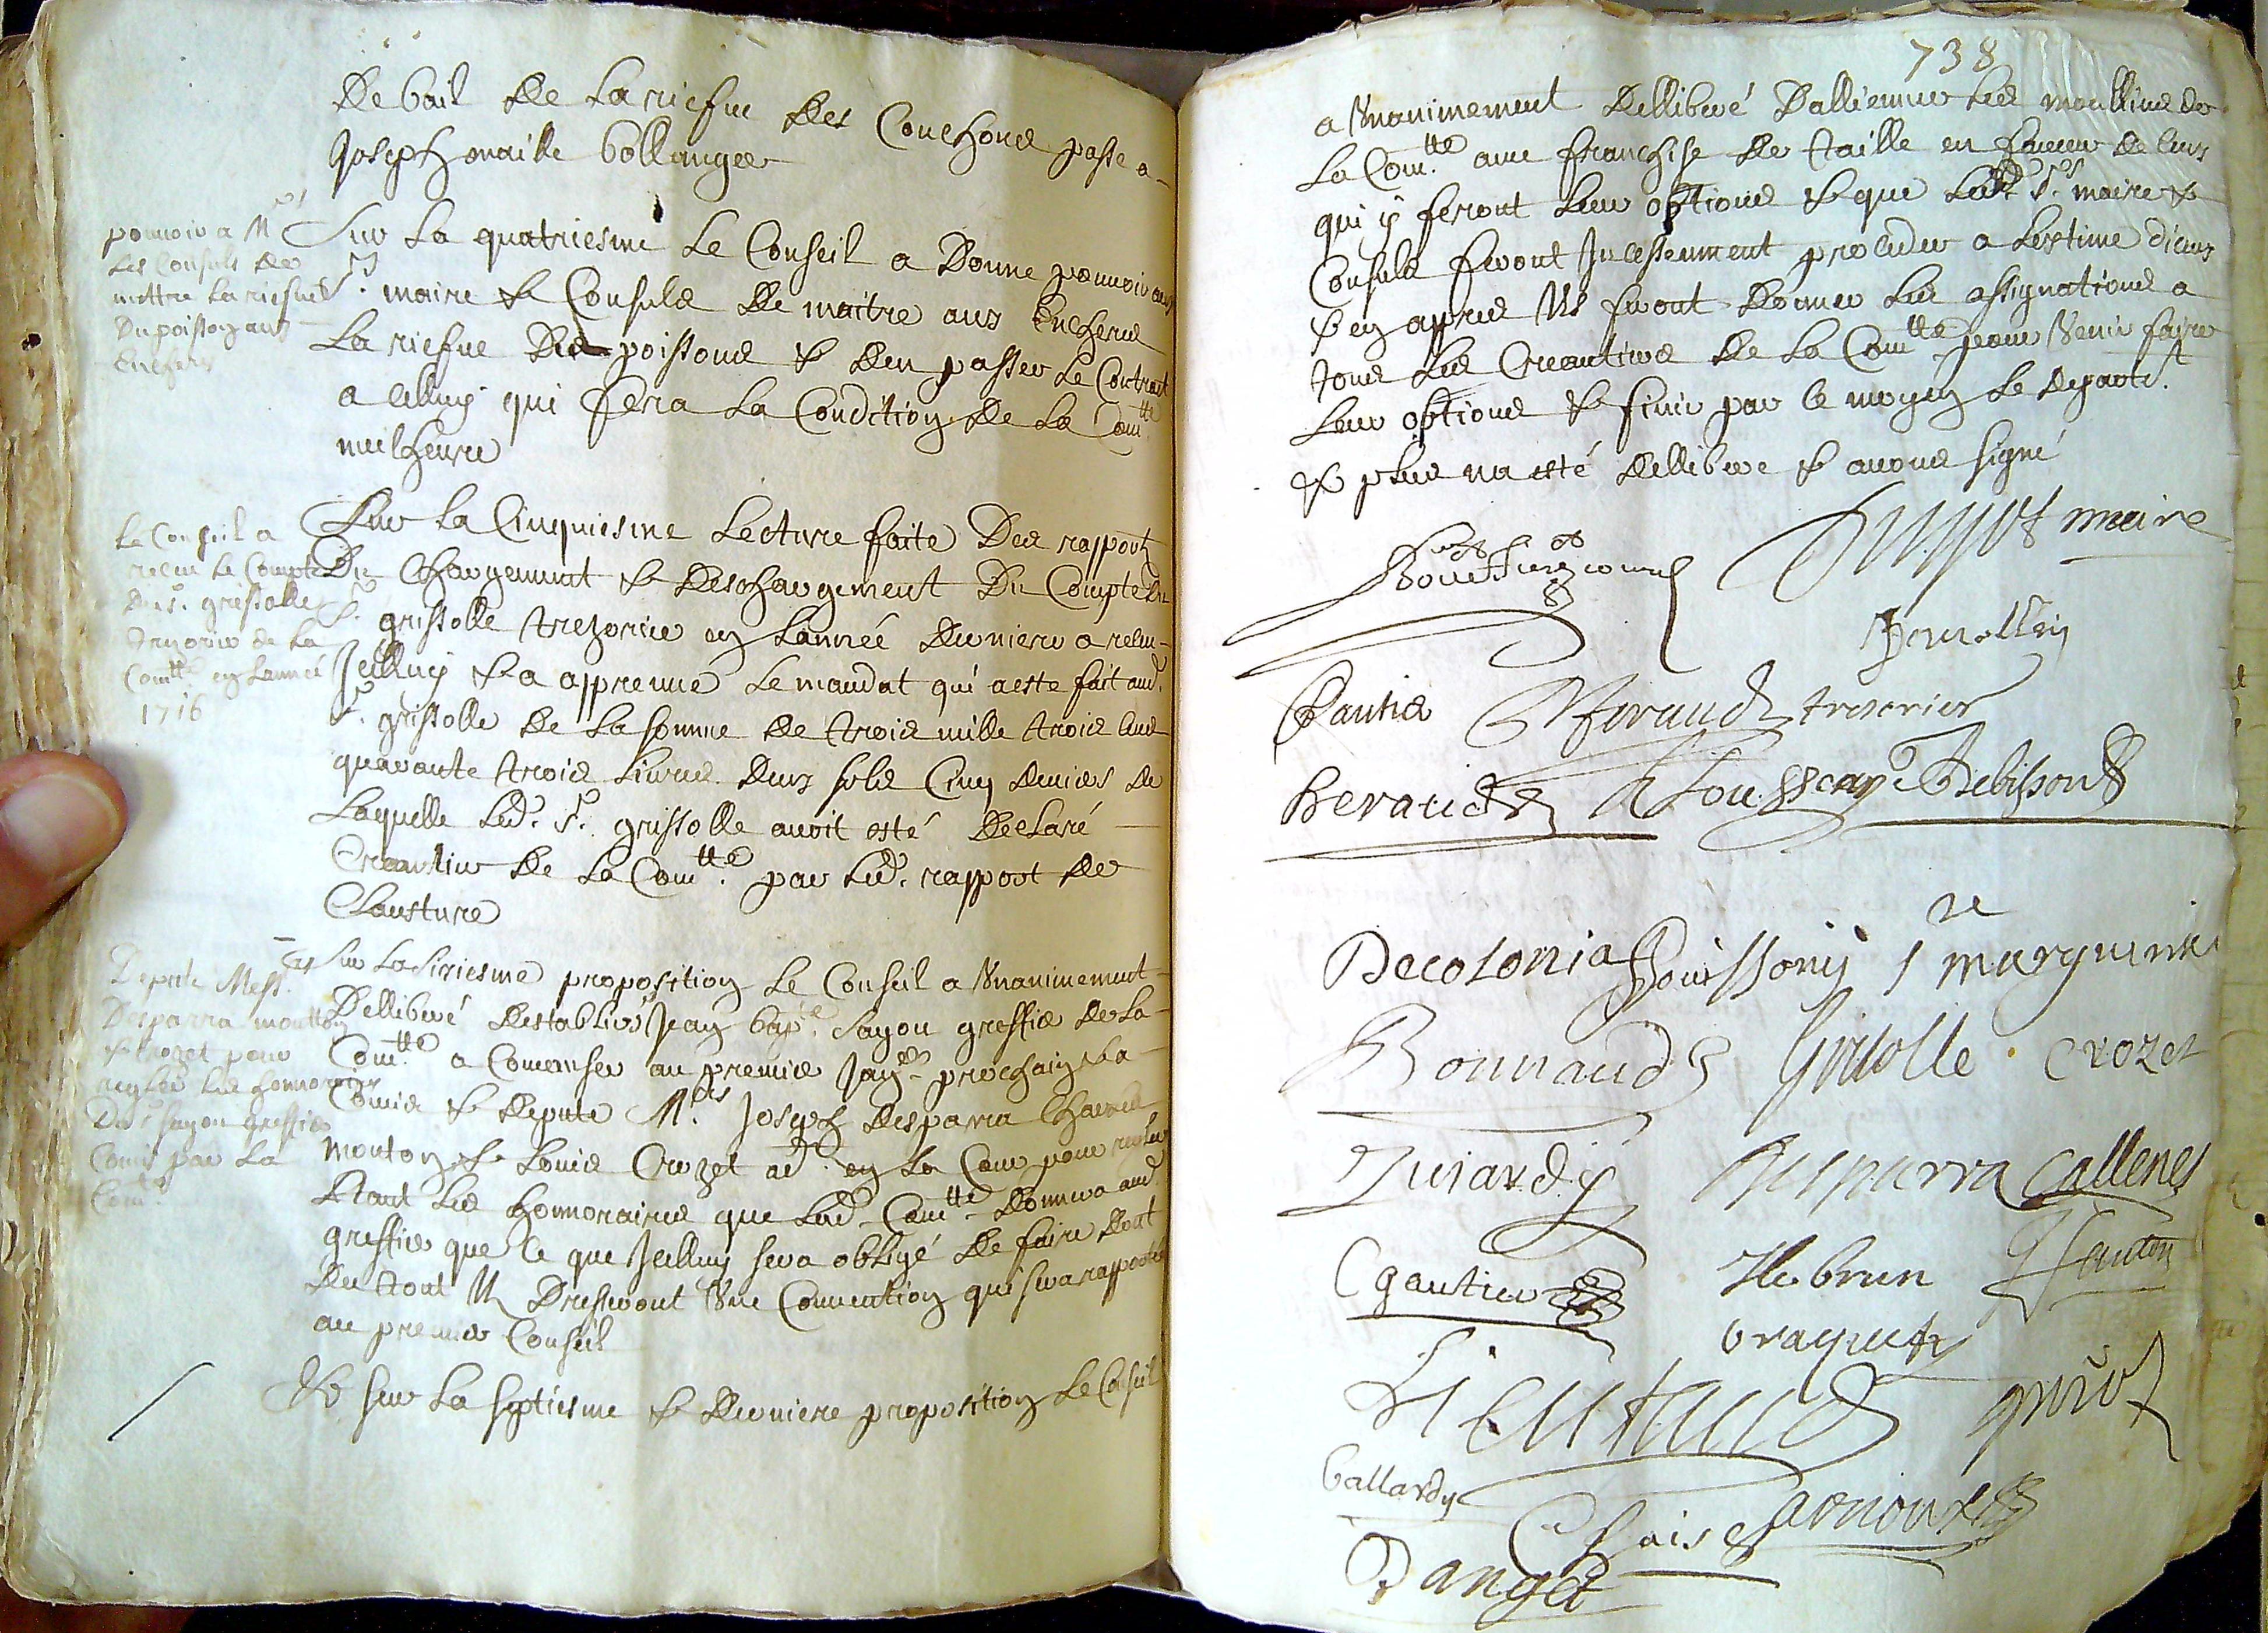 De bail de la riesve des Couchons passe a
Joseph maille bollanger
pouvoir a Mrs
les Consuls de
mettre la riesve
du poisson aux
Encheres
Sur la quatriesme le Conseil a Donne pouvoir aux
Srs. maire & Consuls de maitre aux Encheres
la riesve des poissons & den passer le Contract
a celluy qui fera la Condition de la Comtté
meilheure
Le Conseil a
receu le Compte
du sr. grissolle
trezorier de la
Comtté en lannée
1716
Sur la Cinquiesme Lecture faite Des rapportz
Du Chargement & deschargement Du Compte du
Sr. grissolle trezorier en lannée derniere a receu
Jcelluy & a appreuvé le mandat qui a este fait aud.
Sr. grissolle de la somme de trois mille trois Cens
quarante trois livres deux sols Cinq deniers de
laquelle led. Sr. grissolle avoit esté declaré
Creantier de la Comtté. par led. rapport de
Clausture
Depute Messrs
Desparra moutton
& Crozet pour
regler les honnoraires
Du sr sayou greffier
Comis par la
Comtté
Sur la sixiesme proposition le Conseil a Unanimement
Delliberé destablir Jean bapte. Sayou greffier de la
Comtté a Comenser au premier Janer prochain & a
Comis & depute Mrs. Joseph desparra Charles
mouton & Louis Crozet ad. en la Cour pour regler
tant les honnoraires que lad. Comtté donnera aud.
greffier que ce que Jcelluy sera obligé de faire dont
du tout Ils Dresseront Une Convention qui sera rapportée
au premier Conseil
Et sur la septiesme & derniere proposition le Conseil
738
a Unanimement Delliberé Dallienner les moullins de
la Comtté. avec franchise de taille en faveur de ceux
qui y feront leur options & que lesd. Srs. maire &
Consuls feront Jncessemment proceder a lestime diceux
& en apres Ils feront donner les assignations a
tous les Creantiers de la Comtté pour Venir faire
leur options & finir par ce moyen le departt.
& plus na esté delliberé & avons signé
maire
trezorier
Beraud
Debisson
Decolonia
Bonnaud
Grisolle
Crozet
Jujardy
Desparra
Callenes
Cgautier
Hebrun
braquety
Lieutaud
guiot
Gallardy
Chais
arnoux
Danget